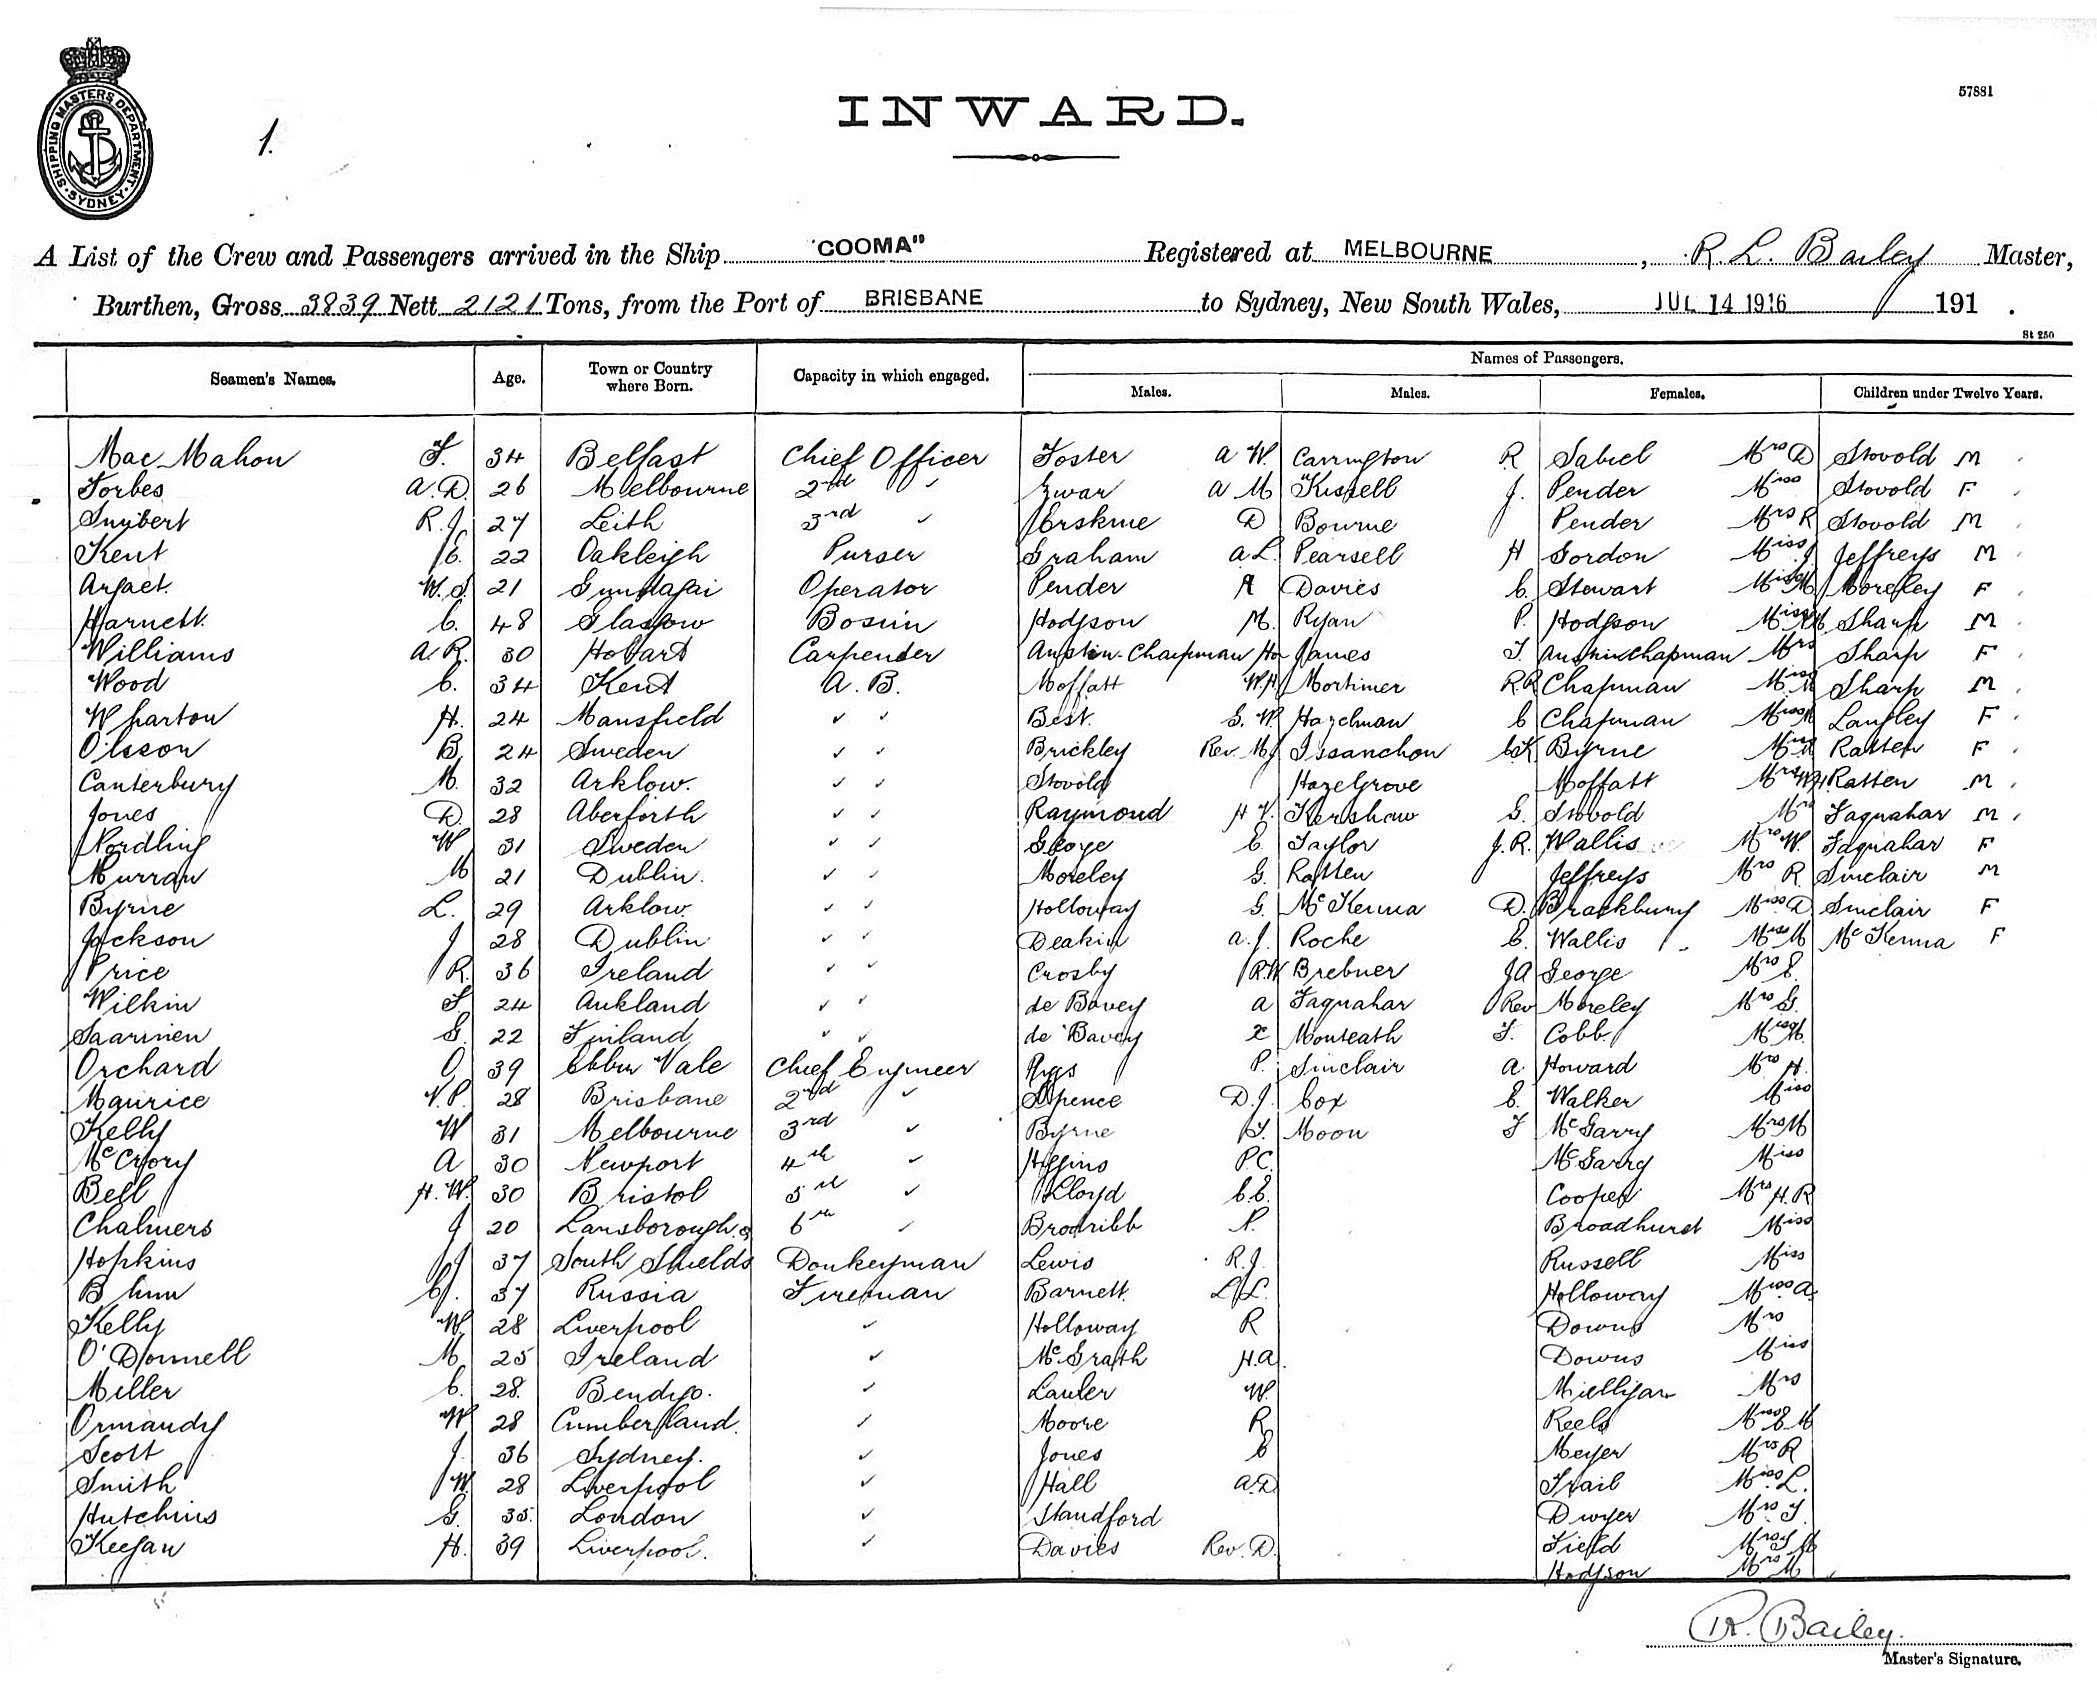 SHIPPING MASTERS DEPARTMENT
SYDNEY
1.
INWARD.
57881
A List of the Crew and Passengers arrived in the Ship "COOMA" Registered at MELBOURNE, R. L. Bailey Master,
Burthen, Gross 3839 Nett 2121 Tons, from the Port of BRISBANE to Sydney, New South Wales, JUL 14 1916 191 .
St 250
Seamen's Names. Age. Town or Country where Born. Capacity in which engaged. Names of Passengers.
Males. Males. Females. Children under Twelve Years.
Mac Mahon F. 34 Belfast Chief Officer Foster A W. Carrington R Sabiel Mrs D Stovold M
Forbes A. D. 26 Melbourne 2nd " Zwar A M Kissell J. Pender Miss Stovold F
R. J. 27 Leith 3rd " Erskine D Bourne Pender Mrs R Stovold M
Kent E. 22 Oakleigh Purser Graham A L. Pearsell H Gordon Miss J Jeffreys M
W. S. 21 Gundagai Operator Pender R Davies C. Stewart Miss M Moreley F
Harnett C. 48 Glasgow Bosun Hodgson M. Ryan P. Hodgson Miss M Sharp M
Williams A. R. 30 Hobart Carpender Austin-Chapman Hon James T. Austin Chapman Mrs Sharp F
Wood C. 34 Kent A. B. Moffatt W. H. Mortimer R. R. Chapman Miss M Sharp M
Wharton H. 24 Mansfield " " Best. G. W. Hazelman C Chapman Miss M Langley F
Olsson B. 24 Sweden " " Brickley Rev. M J Issanchon C. K Byrne Miss Ratten F
Canterbury M. 32 Arklow. " " Stovold Hazelgrove Moffatt Mrs W H. Ratten M
Jones D. 28 Aberforth " " Raymond H V. Kershaw G. Stovold Mrs Faquahar M
Nordling W 31 Sweden " " George E. Taylor J. R. Wallis Mrs W. Faquahar F
Murray M 21 Dublin. " " Moreley G. Ratten Jeffreys Mrs R. Sinclair M
Byrne L. 29 Arklow. " " Holloway G. McKenna D. Brackbury Miss D Sinclair F
Jackson J 28 Dublin " " Deakin A. J. Roche E. Wallis Miss M McKenna F
Price R. 36 Ireland " " Crosby R. W Brebner J A George Mrs E.
Wilkin F. 24 Aukland " " de Bavey A Faquahar Rev Moreley Mrs G.
Saarinen G. 22 Finland " " de Bavey X Monteath F. Cobb. Miss M.
Orchard O. 39 Ebbw Vale Chief Engineer P. Sinclair A. Howard Mrs H.
Maurice V. P. 28 Brisbane 2nd " Spence D. J. Cox E. Walker Miss
Kelly W 31 Melbourne 3rd " Byrne T. Moon F McGarry Mrs M
McCrory A 30 Newport 4th " Higgins P. C. McGarry Miss
Bell H. W. 30 Bristol 5th " Lloyd C. E. Cooper Mrs H. R
Chalmers J 20 6th " Brodribb N. Broadhurst Miss
Hopkins J 37 South Shields Donkeyman Lewis R. J. Russell Miss
37 Russia Fireman Barnett L. L. Holloway Miss A.
Kelly W. 28 Liverpool " Holloway R Downs Mrs
O'Donnell M 25 Ireland " McGrath H. A. Downs Miss
Miller C. 28. Bendigo. " Lawler W. Milligan Mrs
Ormandy W 28 Cumberland. " Moore R Reels Miss E M
Scott J. 36 Sydney. " Jones E Meyer Mrs R
Smith W. 28 Liverpool " Hall A. D Trail Miss L.
Hutchins G. 35. London " Standford Dwyer Mrs T.
Keegan H. 39 Liverpool. " Davies Rev. D. Field Mrs J M
Hodgson Mrs M
R. Bailey.
Master's Signature.